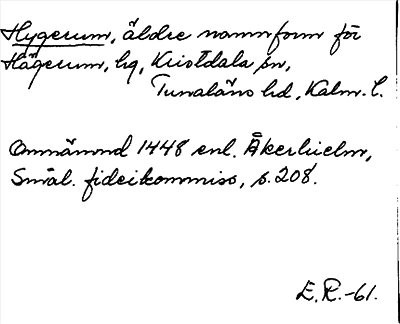 Hygerum, äldre namnform för
Hägerum, hg, Kristdala sn,
Tunaläns hd, Kalm. l.
Omnämnd 1448 enl. Åkerhielm,
Smål. fideikommiss, s. 208.
E.R.-61.